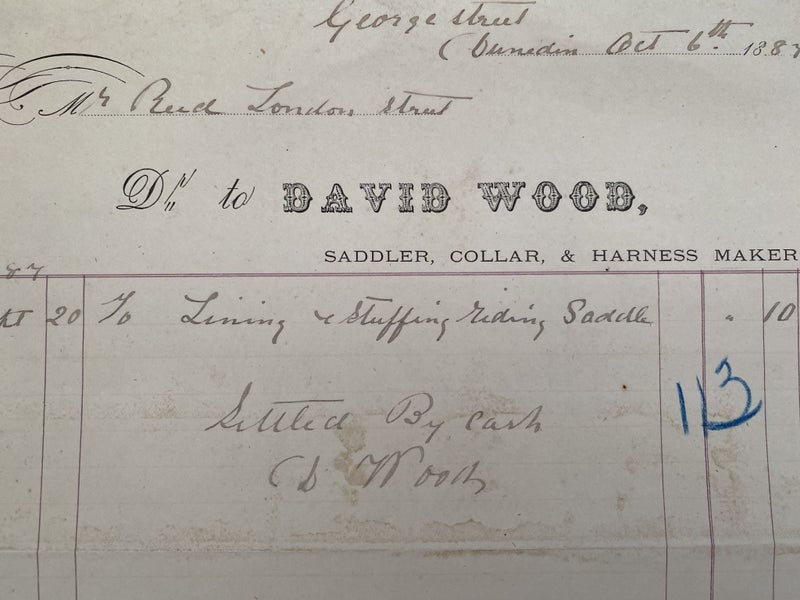 George street
Dunedin Oct 6th 1887
Mr Reid London street
Dr to DAVID WOOD,
SADDLER, COLLAR, & HARNESS MAKER
87
pt 20 To Lining & Stuffing riding Saddle " 10
113
Settled By Cash
D Wood